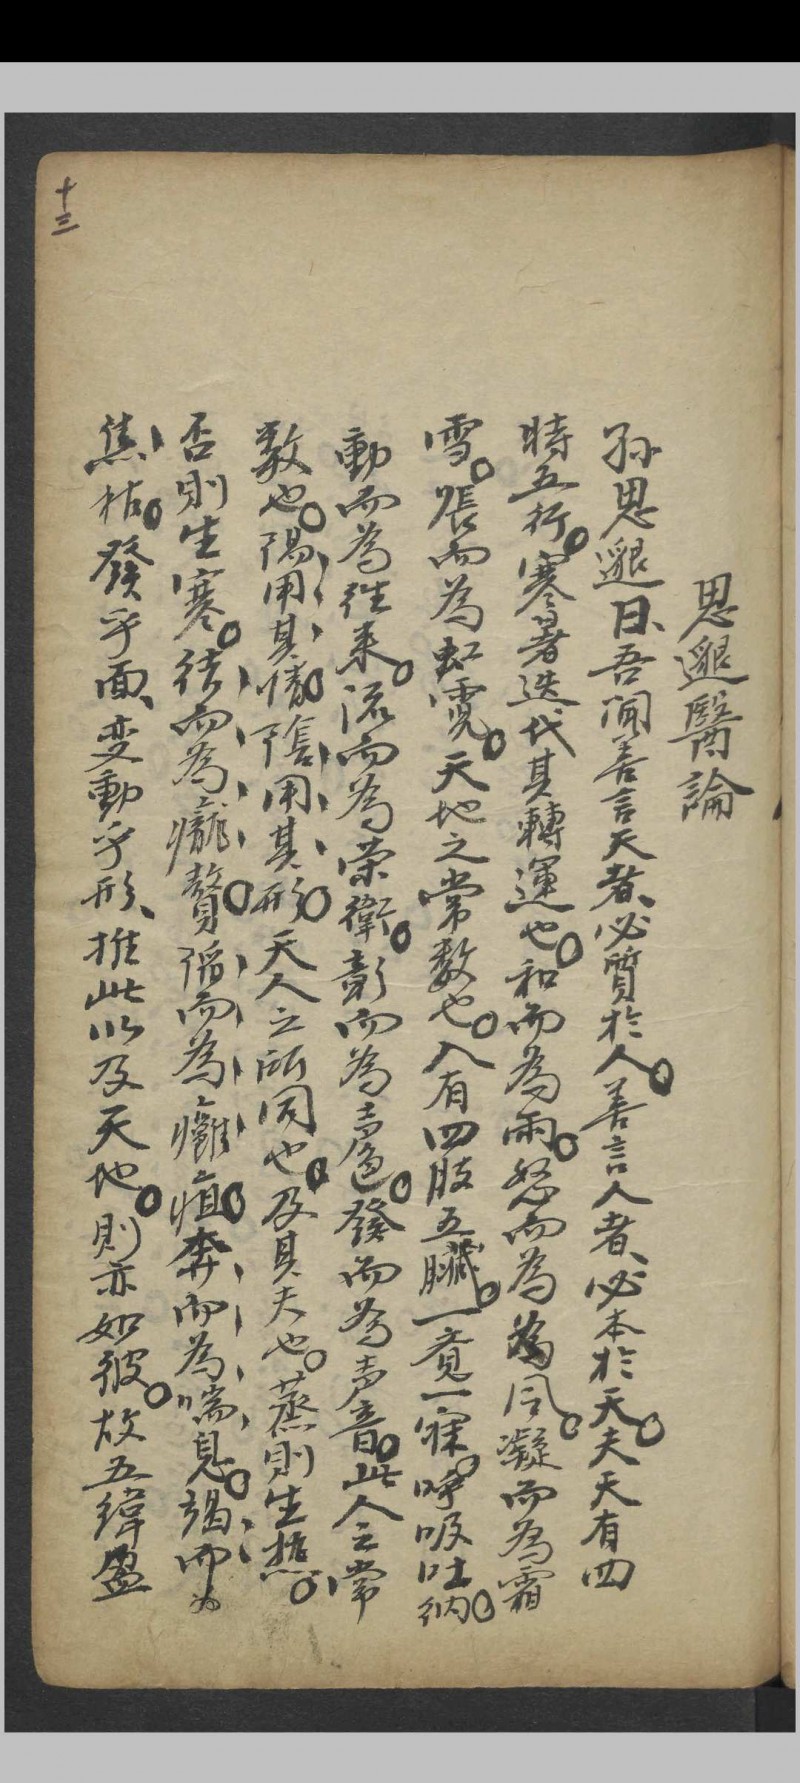 思邈醫論
孫思邈曰、吾聞善言天者、必質於人。善言人者、必本於天。夫天有四
時五行。寒暑迭代其轉運也。和而為雨。怒而為為风。凝而為霜
雪。張而為虹霓。天地之常數也。人有四肢五臟。一覔一寐。呼吸吐納。
動而為往來。流而為榮衛。彰而為氣色。發而為声音。此人之常
数也。陽用其情。陰用其形。天人之所同也。及其失也。蒸則生热。
否則生寒。結而為瘤贅。陷而為癰疽。奔而為喘息。竭而为
焦枯。發乎面、変動乎形、推此以及天地。則亦如彼。故五緯盈
十三